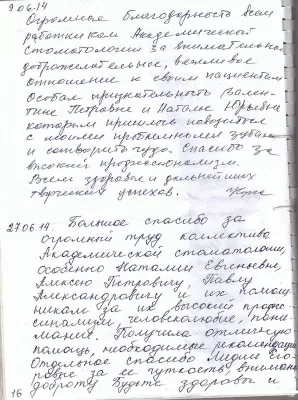 9.06.14
Огромная благодарность всем
работникам Академической
Стоматологии за внимательное
доброжелательное, вежливое
отношение к своим пациентам
Особая признательность Вален-
тине Петровне и Наталье Юрьевне
которым пришлось повозиться
с моими проблемными зубами
и сотворить чудо. Спасибо за
высокий профессионализм.
Всем здоровья и дальнейших
творческих успехов.
27.06.14. Большое спасибо за
огромный труд коллектива
Академической стоматологии,
особенно Наталии Евгеньевне,
Алексею Петровичу, Павлу
Александровичу и их помощ-
никам за их высокий профес-
сионализм, человеколюбие, пони-
мание. Получила отличную
помощь, необходимые рекомендации
Отдельное спасибо Лидии Его-
ровне за ее чуткость, внимание
доброту. Будьте здоровы и
16